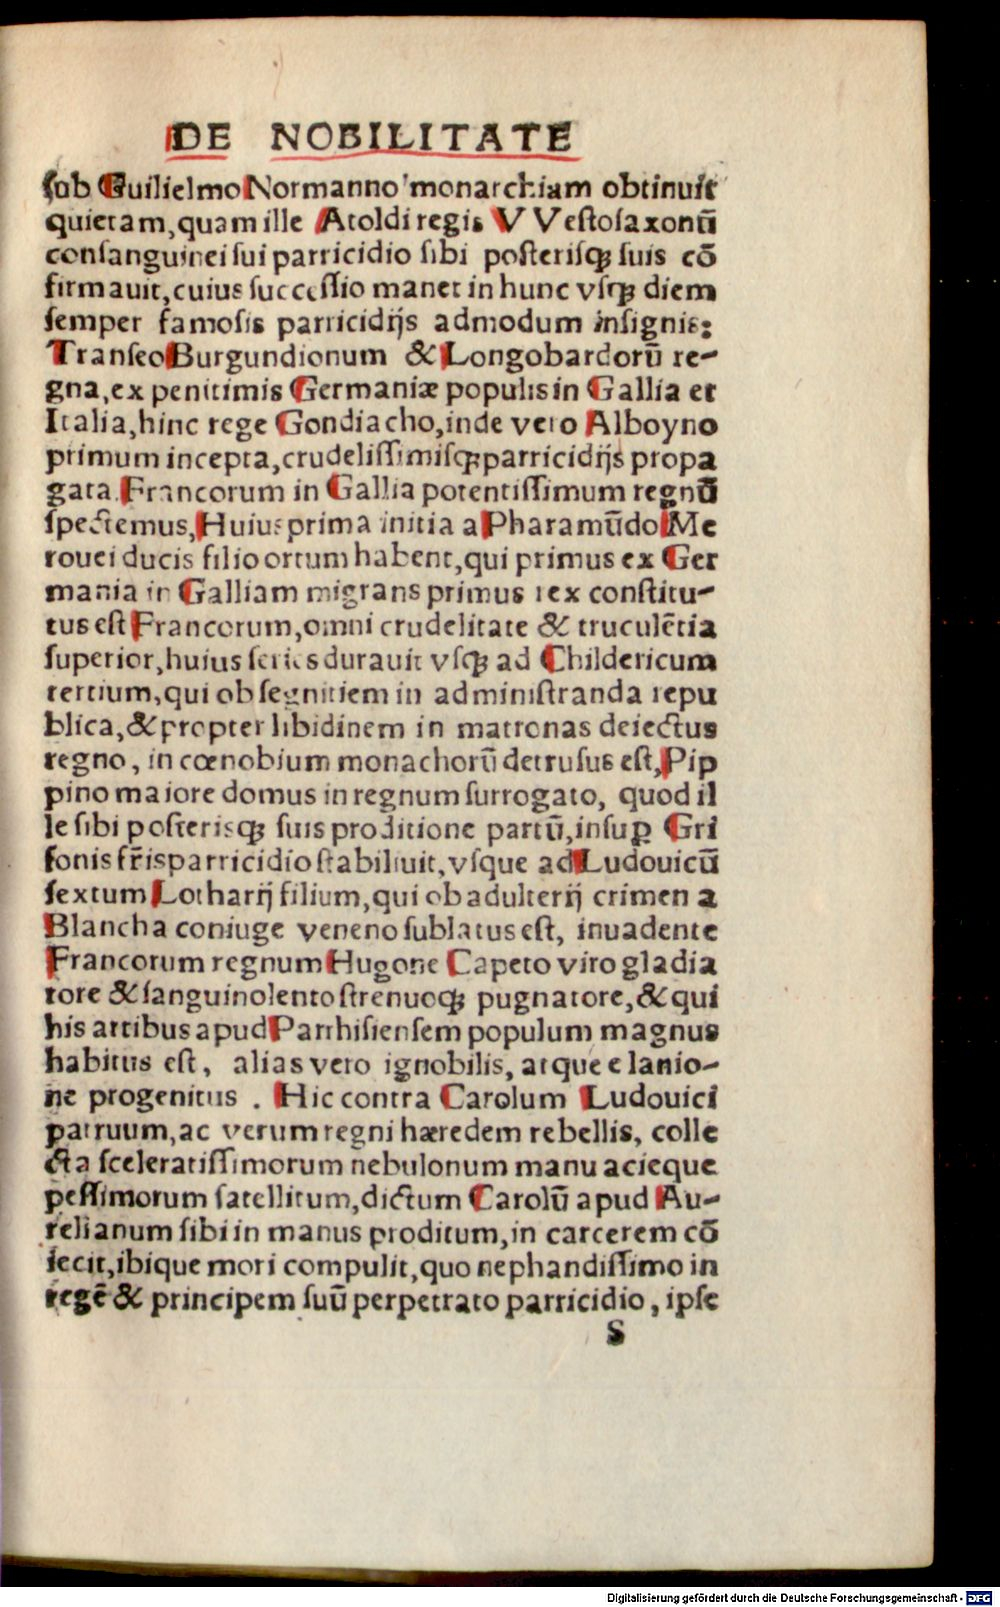 DE NOBILITATE
ſub Guilielmo Normanno monarchiam obtinuit
quietam, quam ille Aroldi regis VVeſtoſaxonū
conſanguinei ſui parricidio ſibi poſteriſq; ſuis cō
firmauit, cuius ſucceſſio manet in hunc vſq; diem
ſemper famoſis parricidijs admodum inſignis:
Tranſeo Burgundionum & Longobardorū re-
gna, ex penitimis Germaniæ populis in Gallia et
Italia, hinc rege Gondiacho, inde vero Alboyno
primum incepta, crudeliſſimiſq; parricidijs propa
gata. Francorum in Gallia potentiſſimum regnū
ſpectemus, Huius prima initia a Pharamūdo Me
rouei ducis filio ortum habent, qui primus ex Ger
mania in Galliam migrans primus rex conſtitu-
tus eſt Francorum, omni crudelitate & truculētia
ſuperior, huius ſeries durauit vſq; ad Childericum
tertium, qui ob ſegnitiem in adminiſtranda repu
blica, & propter libidinem in matronas deiectus
regno, in cœnobium monachorū detruſus eſt, Pip
pino maiore domus in regnum ſurrogato, quod il
le ſibi poſteriſq; ſuis proditione partū, inſuꝑ Gri
fonis fr̄is parricidio ſtabiliuit, vſque ad Ludouicū
ſextum Lotharij filium, qui ob adulterij crimen a
Blancha coniuge veneno ſublatus eſt, inuadente
Francorum regnum Hugone Capeto viro gladia
tore & ſanguinolento ſtrenuoq; pugnatore, & qui
his artibus apud Parrhiſienſem populum magnus
habitus eſt, alias vero ignobilis, atque e lanio-
ne progenitus. Hic contra Carolum Ludouici
patruum, ac verum regni hæredem rebellis, colle
cta ſceleratiſſimorum nebulonum manu acieque
peſſimorum ſatellitum, dictum Carolū apud Au-
relianum ſibi in manus proditum, in carcerem cō
iecit, ibique mori compulit, quo nephandiſſimo in
regē & principem ſuū perpetrato parricidio, ipſe
S
Digitalisierung gefördert durch die Deutsche Forschungsgemeinschaft - DFG